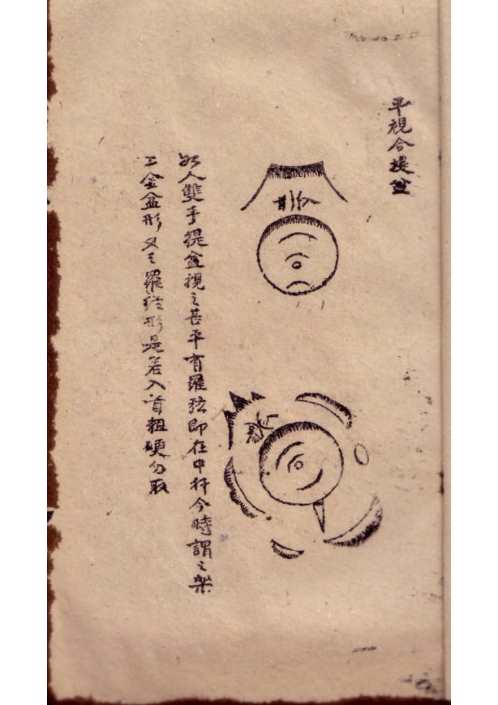 平視合提盆
如人雙手提盆視之甚平有羅弦即在中杆今時謂之架
工金盆形又之羅弦形是若入首粗硬勿取